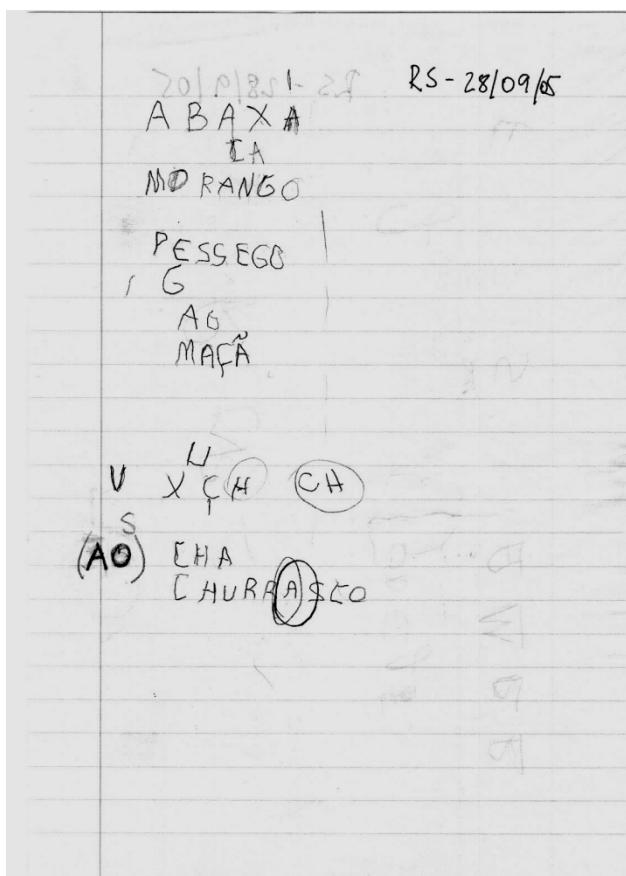 RS - 28/09/05
ABAXA
CA
MORANGO
PESSEGO
G
AO
MAÇÃ
U
V X Ç H CH
S
(AO) CHA
CHURRASCO